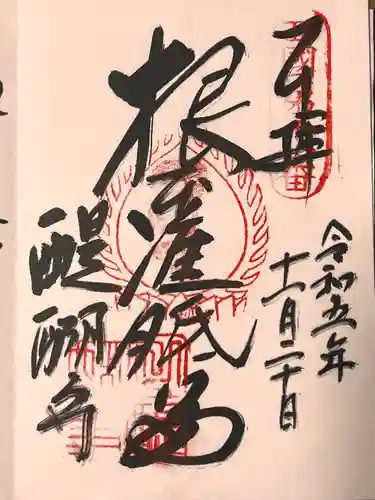 奉拝
令和五年
十一月二十日
根本准胝尊
醍醐寺